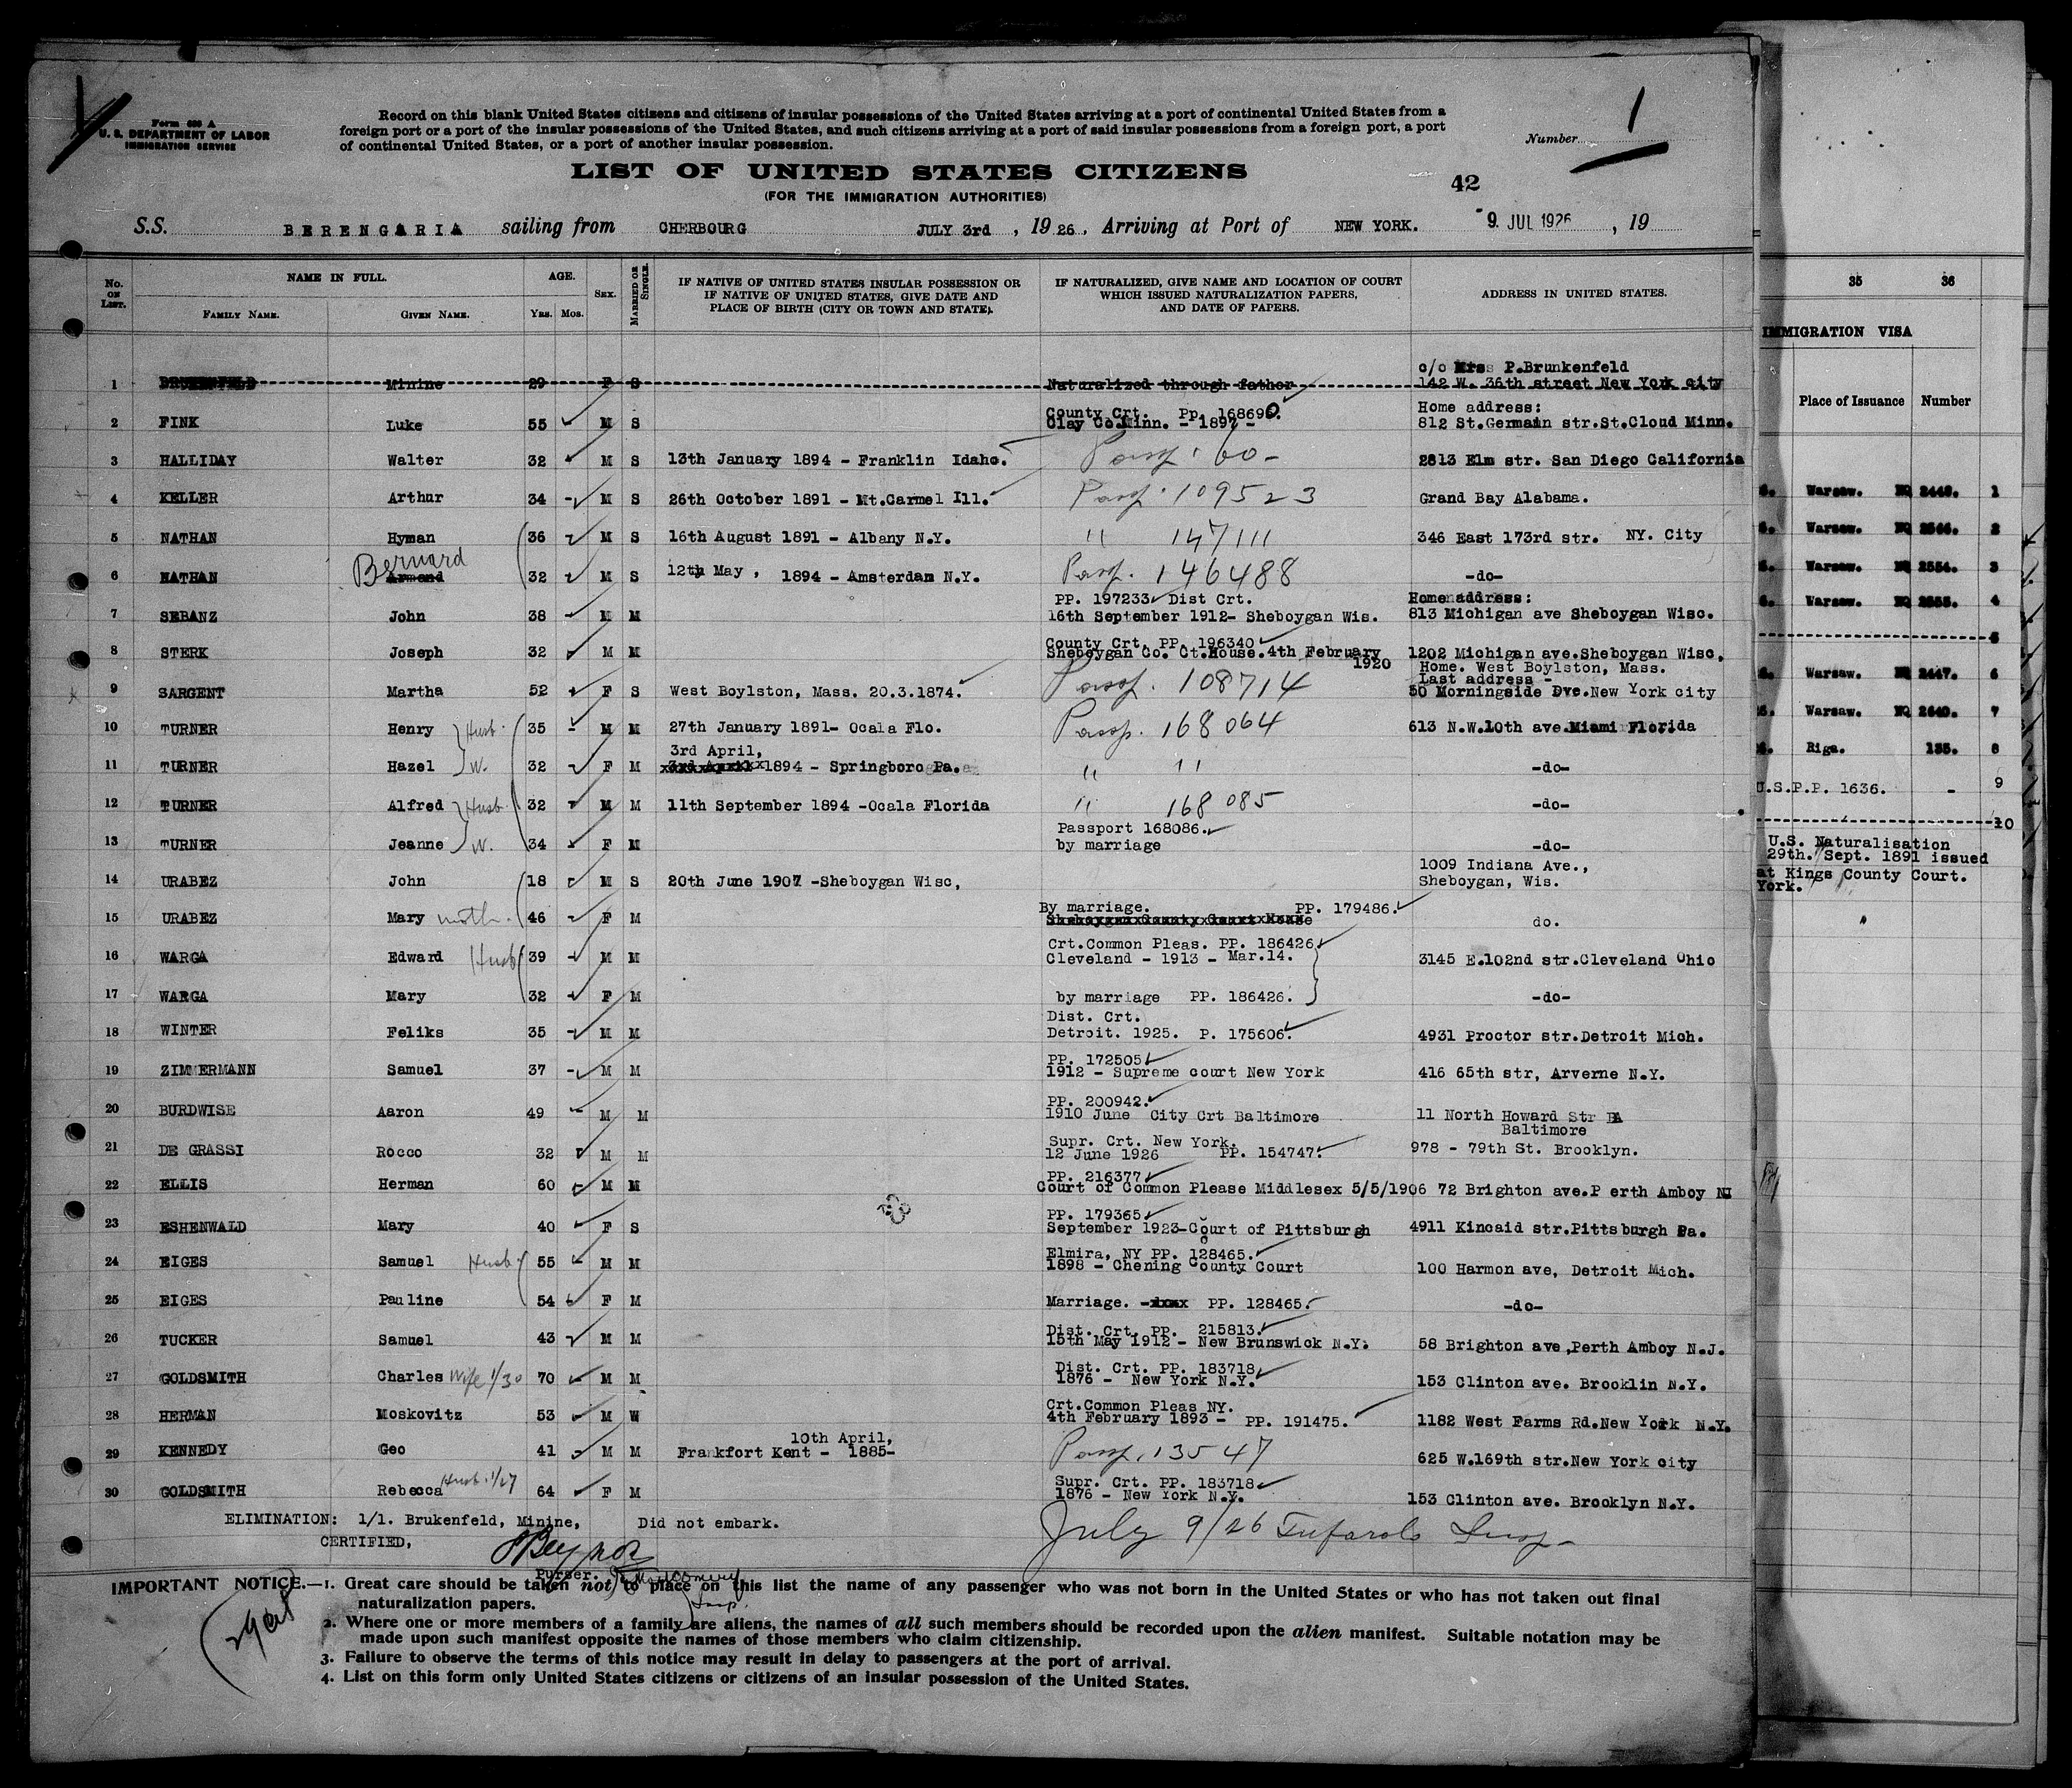 Form 630 A
U. S. DEPARTMENT OF LABOR
IMMIGRATION SERVICE
Record on this blank United States citizens and citizens of insular possessions of the United States arriving at a port of continental United States from a
foreign port or a port of the insular possessions of the United States, and such citizens arriving at a port of said insular possessions from a foreign port, a port
of continental United States, or a port of another insular possession.
Number 1
LIST OF UNITED STATES CITIZENS
42
(FOR THE IMMIGRATION AUTHORITIES)
S.S. BERENGARIA sailing from CHERBOURG JULY 3rd, 1926, Arriving at Port of NEW YORK. 9 JUL 1926, 19
No. ON LIST. NAME IN FULL. FAMILY NAME. GIVEN NAME. AGE. YRS. MOS. SEX. MARRIED OR SINGLE. IF NATIVE OF UNITED STATES INSULAR POSSESSION OR IF NATIVE OF UNITED STATES, GIVE DATE AND PLACE OF BIRTH (CITY OR TOWN AND STATE). IF NATURALIZED, GIVE NAME AND LOCATION OF COURT WHICH ISSUED NATURALIZATION PAPERS, AND DATE OF PAPERS. ADDRESS IN UNITED STATES.
c/o Mrs P.Brunkenfeld
1 Minine 29 F S Naturalized through father 142 W. 36th street New York city
County Crt. Pp. 168690. Home address:
2 FINK Luke 55 M S Clay Co.Minn. - 1897 - 812 St.Germain str.St.Cloud Minn.
3 HALLIDAY Walter 32 M S 13th January 1894 - Franklin Idaho. Passp. 60- 2813 Elm str. San Diego California
4 KELLER Arthur 34 M S 26th October 1891 - Mt.Carmel Ill. Passp. 109523 Grand Bay Alabama.
5 NATHAN Hyman 36 M S 16th August 1891 - Albany N.Y. " 147111 346 East 173rd str. NY. City
Bernard
6 NATHAN Armand 32 M S 12th May, 1894 - Amsterdam N.Y. Passp. 146488 -do-
PP. 197233 Dist Crt. Home address:
7 SEBANZ John 38 M M 16th September 1912- Sheboygan Wis. 813 Michigan ave Sheboygan Wisc.
County Crt. PP. 196340
8 STERK Joseph 32 M M Sheboygan Co. Ct.House.4th February 1920 1202 Michigan ave.Sheboygan Wisc,
Home. West Boylston, Mass.
Last address -
9 SARGENT Martha 52 F S West Boylston, Mass. 20.3.1874. Passp. 108714 50 Morningside Dve.New York city
10 TURNER Henry Husb. 35 M M 27th January 1891- Ocala Flo. Passp. 168064 613 N.W.10th ave.Miami Florida
3rd April,
11 TURNER Hazel W. 32 F M 1894 - Springboro Pa. " " -do-
12 TURNER Alfred Husb. 32 M M 11th September 1894 -Ocala Florida " 168085 -do-
Passport 168086.
13 TURNER Jeanne W. 34 F M by marriage -do-
1009 Indiana Ave.,
14 URABEZ John 18 M S 20th June 1907 -Sheboygan Wisc, Sheboygan, Wis.
By marriage. PP. 179486.
15 URABEZ Mary moth. 46 F M Sheboygan County Court House do.
Crt.Common Pleas. PP. 186426
16 WARGA Edward Husb 39 M M Cleveland - 1913 - Mar.14. 3145 E.102nd str.Cleveland Ohio
17 WARGA Mary 32 F M by marriage PP. 186426. -do-
Dist. Crt.
18 WINTER Feliks 35 M M Detroit. 1925. P. 175606. 4931 Proctor str.Detroit Mich.
PP. 172505
19 ZIMMERMANN Samuel 37 M M 1912 - Supreme court New York 416 65th str, Arverne N.Y.
PP. 200942.
20 BURDWISE Aaron 49 M M 1910 June City Crt Baltimore 11 North Howard Str
Baltimore
Supr. Crt. New York.
21 DE GRASSI Rocco 32 M M 12 June 1926 PP. 154747. 978 - 79th St. Brooklyn.
PP. 216377
22 ELLIS Herman 60 M M Court of Common Please Middlesex 5/5/1906 72 Brighton ave.P erth Amboy NJ
PP. 179365
23 ESHENWALD Mary 40 F S September 1923-Court of Pittsburgh 4911 Kincaid str.Pittsburgh Pa.
Elmira, NY PP. 128465.
24 EIGES Samuel Husb 55 M M 1898 - Chening County Court 100 Harmon ave, Detroit Mich.
25 EIGES Pauline 54 F M Marriage. PP. 128465. -do-
Dist. Crt. PP. 215813.
26 TUCKER Samuel 43 M M 15th May 1912 - New Brunswick N.Y. 58 Brighton ave,Perth Amboy N.J.
Dist. Crt. PP. 183718
27 GOLDSMITH Charles Wife 1/30 70 M M 1876 - New York N.Y. 153 Clinton ave. Brooklin N.Y.
Crt.Common Pleas NY.
28 HERMAN Moskovitz 53 M W 4th February 1893 - PP. 191475. 1182 West Farms Rd.New York N.Y.
10th April,
29 KENNEDY Geo 41 M M Frankfort Kent - 1885- Passp. 13547 625 W.169th str.New York city
Supr. Crt. PP. 183718
30 GOLDSMITH Rebecca Husb. 1/27 64 F M 1876 - New York N.Y. 153 Clinton ave. Brooklyn N.Y.
ELIMINATION: 1/1. Brukenfeld, Minine, Did not embark.
July 9/26 Insp-
CERTIFIED,
Purser.
Insp.
IMPORTANT NOTICE.—1. Great care should be taken not to place on this list the name of any passenger who was not born in the United States or who has not taken out final
naturalization papers.
2. Where one or more members of a family are aliens, the names of all such members should be recorded upon the alien manifest. Suitable notation may be
made upon such manifest opposite the names of those members who claim citizenship.
3. Failure to observe the terms of this notice may result in delay to passengers at the port of arrival.
4. List on this form only United States citizens or citizens of an insular possession of the United States.
35 36
IMMIGRATION VISA
Place of Issuance Number
Warsaw. 2448. 1
Warsaw. 2
Warsaw. 2554. 3
Warsaw. 2555. 4
5
Warsaw. 2447. 6
Warsaw. 2640. 7
Riga. 135. 8
U.S.P.P. 1636. - 9
10
U.S. Naturalisation
29th. Sept. 1891 issued
at Kings County Court.
York.